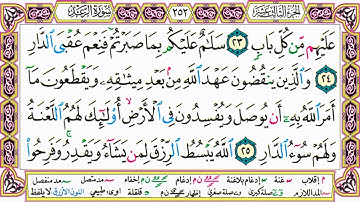 الجزء الثالث عشر ٢٥٢ سورة الرعد
عَلَيۡهِم مِّن كُلِّ بَابٖ ٢٣ سَلَٰمٌ عَلَيۡكُم بِمَا صَبَرۡتُمۡۚ فَنِعۡمَ عُقۡبَى ٱلدَّارِ
٢٤ وَٱلَّذِينَ يَنقُضُونَ عَهۡدَ ٱللَّهِ مِنۢ بَعۡدِ مِيثَٰقِهِۦ وَيَقۡطَعُونَ مَآ
أَمَرَ ٱللَّهُ بِهِۦٓ أَن يُوصَلَ وَيُفۡسِدُونَ فِي ٱلۡأَرۡضِ أُوْلَٰٓئِكَ لَهُمُ ٱللَّعۡنَةُ
وَلَهُمۡ سُوٓءُ ٱلدَّارِ ٢٥ ٱللَّهُ يَبۡسُطُ ٱلرِّزۡقَ لِمَن يَشَآءُ وَيَقۡدِرُۚ وَفَرِحُواْ